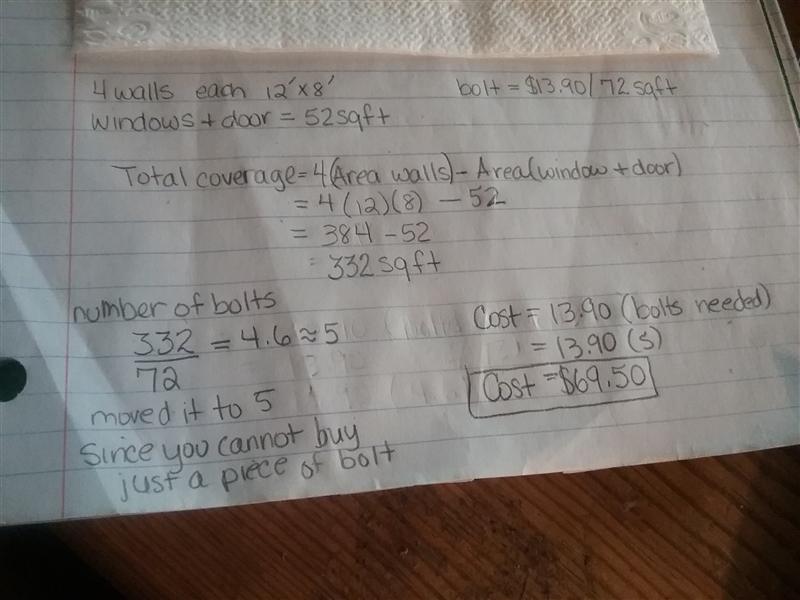 4 walls each 12'x8'
bolt = $13.90/72 sqft
windows + door = 52sqft
Total coverage = 4(Area walls) - Area(window + door)
= 4(12)(8) - 52
= 384 - 52
= 332 sqft
number of bolts
332/72 = 4.6 ≈ 5
moved it to 5
Since you cannot buy
just a piece of bolt
Cost = 13.90 (bolts needed)
= 13.90 (5)
Cost = $69.50